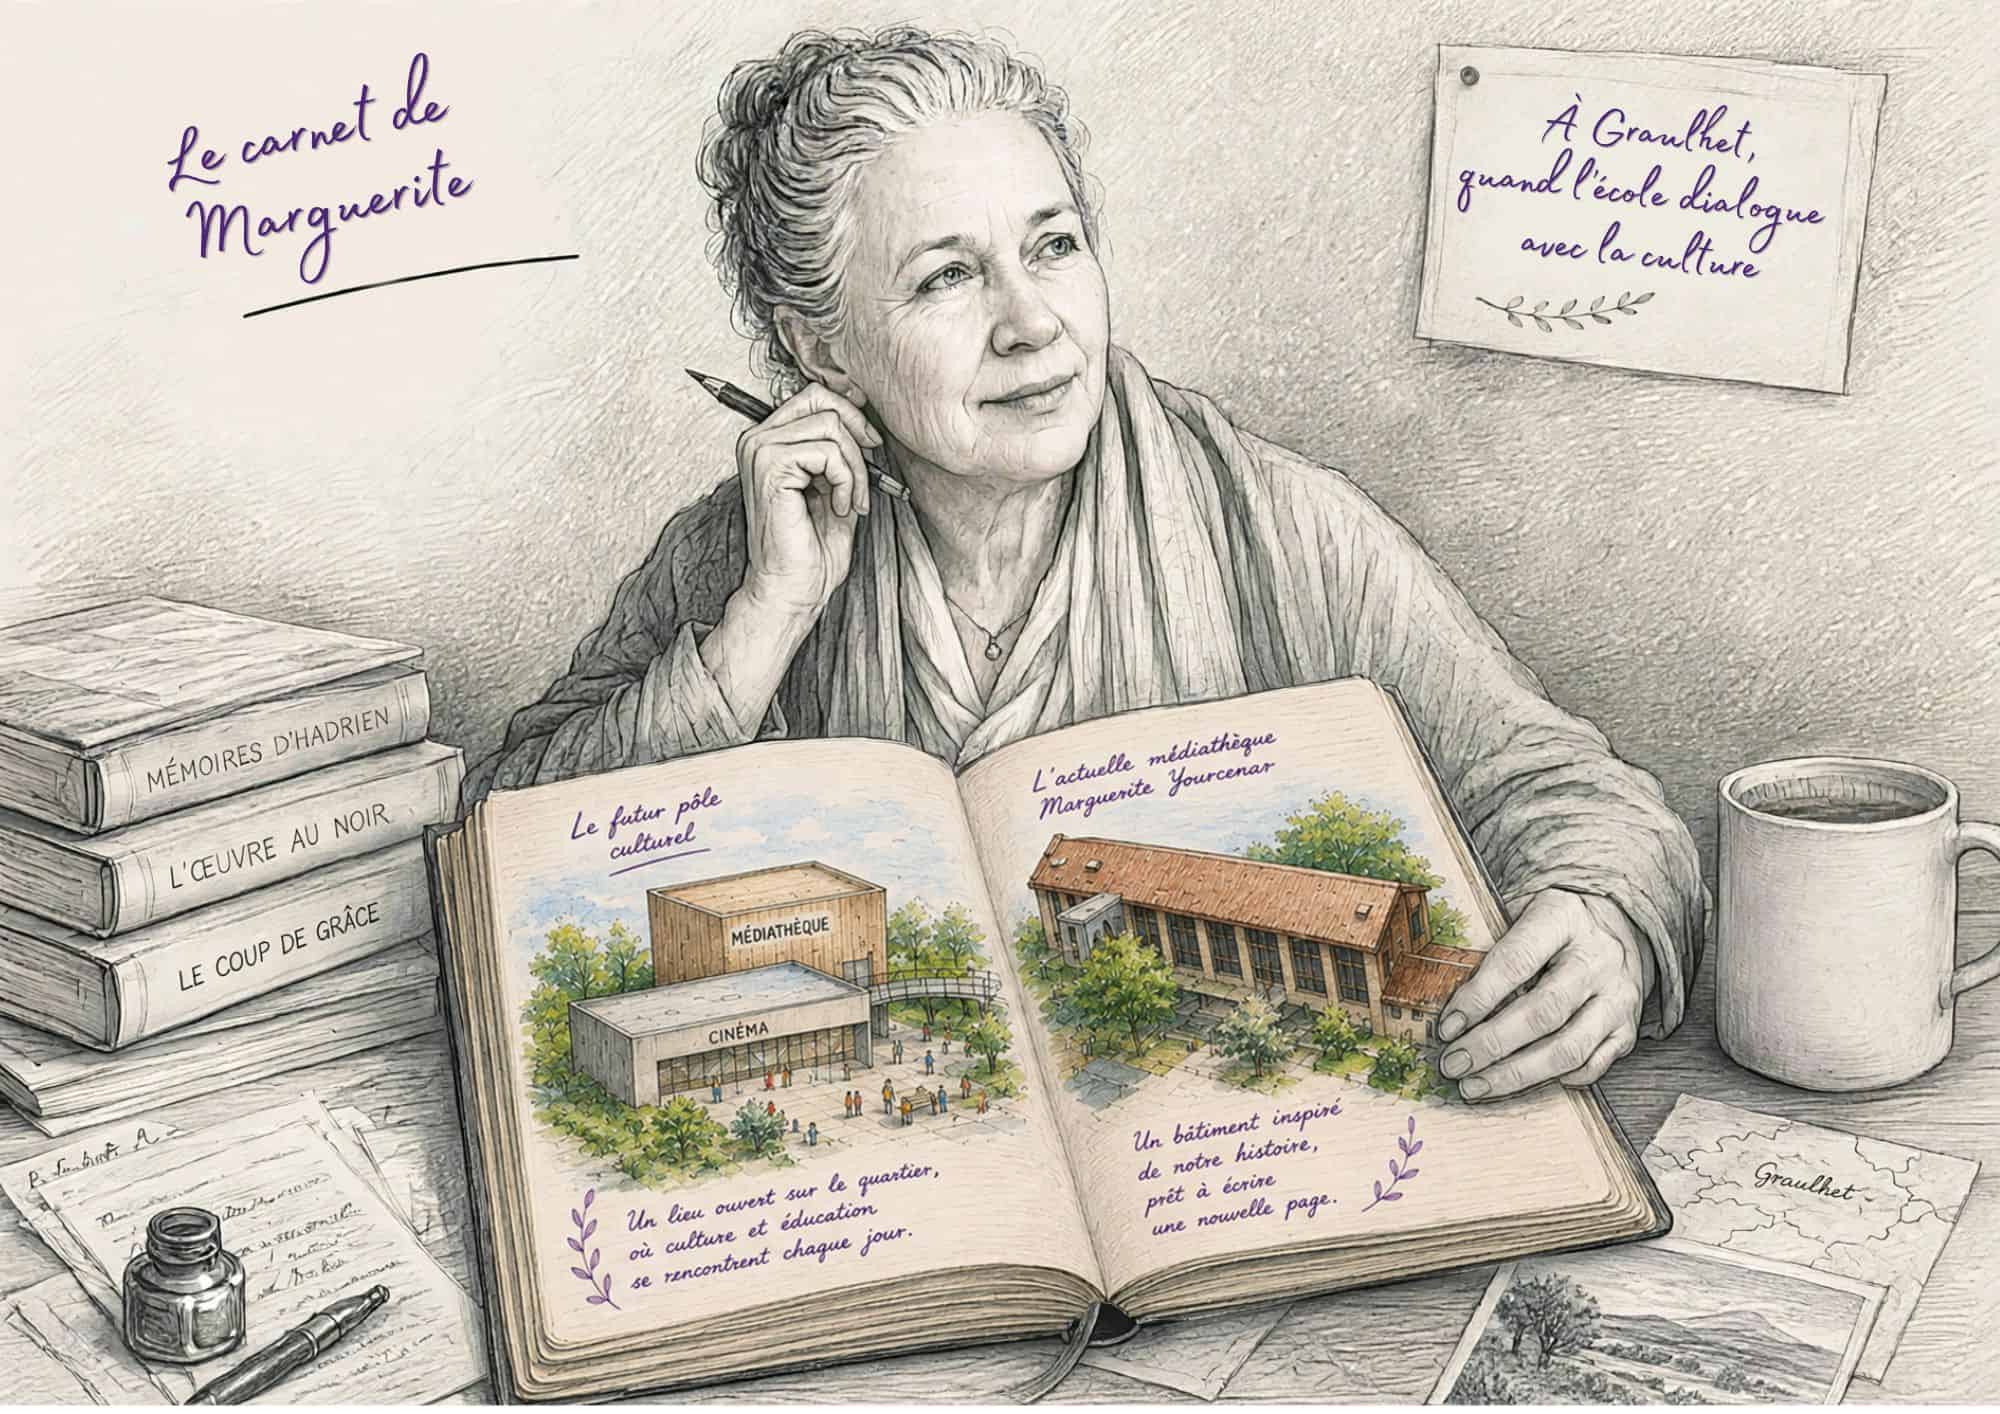 Le carnet de
Marguerite
À Graulhet,
quand l'école dialogue
avec la culture
MÉMOIRES D'HADRIEN
L'ŒUVRE AU NOIR
LE COUP DE GRÂCE
Le futur pôle
culturel
MÉDIATHÈQUE
CINÉMA
Un lieu ouvert sur le quartier,
où culture et éducation
se rencontrent chaque jour.
L'actuelle médiathèque
Marguerite Yourcenar
Un bâtiment inspiré
de notre histoire,
prêt à écrire
une nouvelle page.
Graulhet